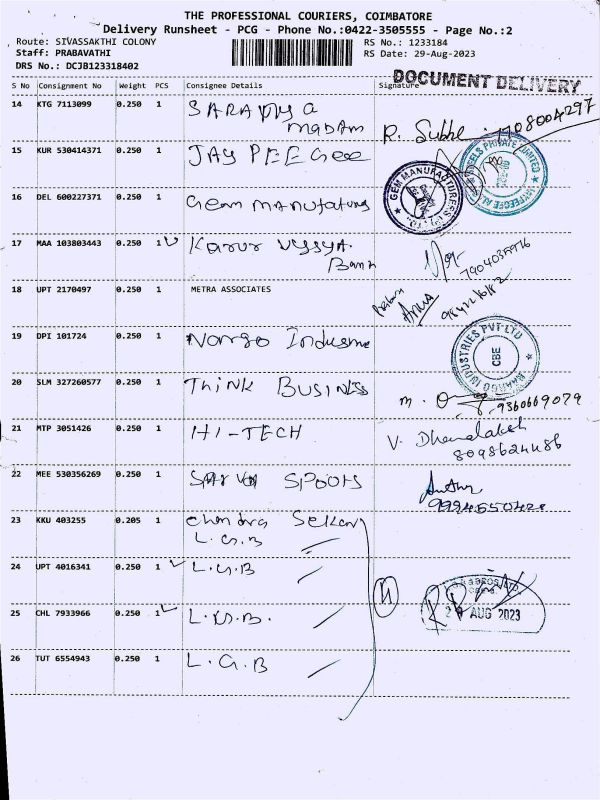 THE PROFESSIONAL COURIERS, COIMBATORE
Delivery Runsheet - PCG - Phone No.:0422-3505555 - Page No.:2
Route: SIVASSAKTHI COLONY
RS No.: 1233184
Staff: PRABAVATHI
RS Date: 29-Aug-2023
DRS No.: DCJB123318402
DOCUMENT DELIVERY
S No Consignment No Weight PCS Consignee Details Signature
14 KTG 7113099 0.250 1 SARANYA
madam
R.
15 KUR 530414371 0.250 1 JAY PEE Gee
16 DEL 600227371 0.250 1 Gem manufaturing
GEM MANUFACTURESS (P) LTD.
17 MAA 103803443 0.250 1 Karur vysya.
Bank
7904035976
18 UPT 2170497 0.250 1 METRA ASSOCIATES
19 DPI 101724 0.250 1
INDUSTRIES PVT LTD
CBE
20 SLM 327260577 0.250 1 Think BUSINESS
m. 9360669079
21 MTP 3051426 0.250 1 HI-TECH
V. Dhanalaksh
8098624486
22 MEE 530356269 0.250 1 SPOORS
23 KKU 403255 0.205 1 Chandra Sekar
L.G.B
24 UPT 4016341 0.250 1 L.G.B
25 CHL 7933966 0.250 1 L.G.B.
AUG 2023
26 TUT 6554943 0.250 1 L.G.B